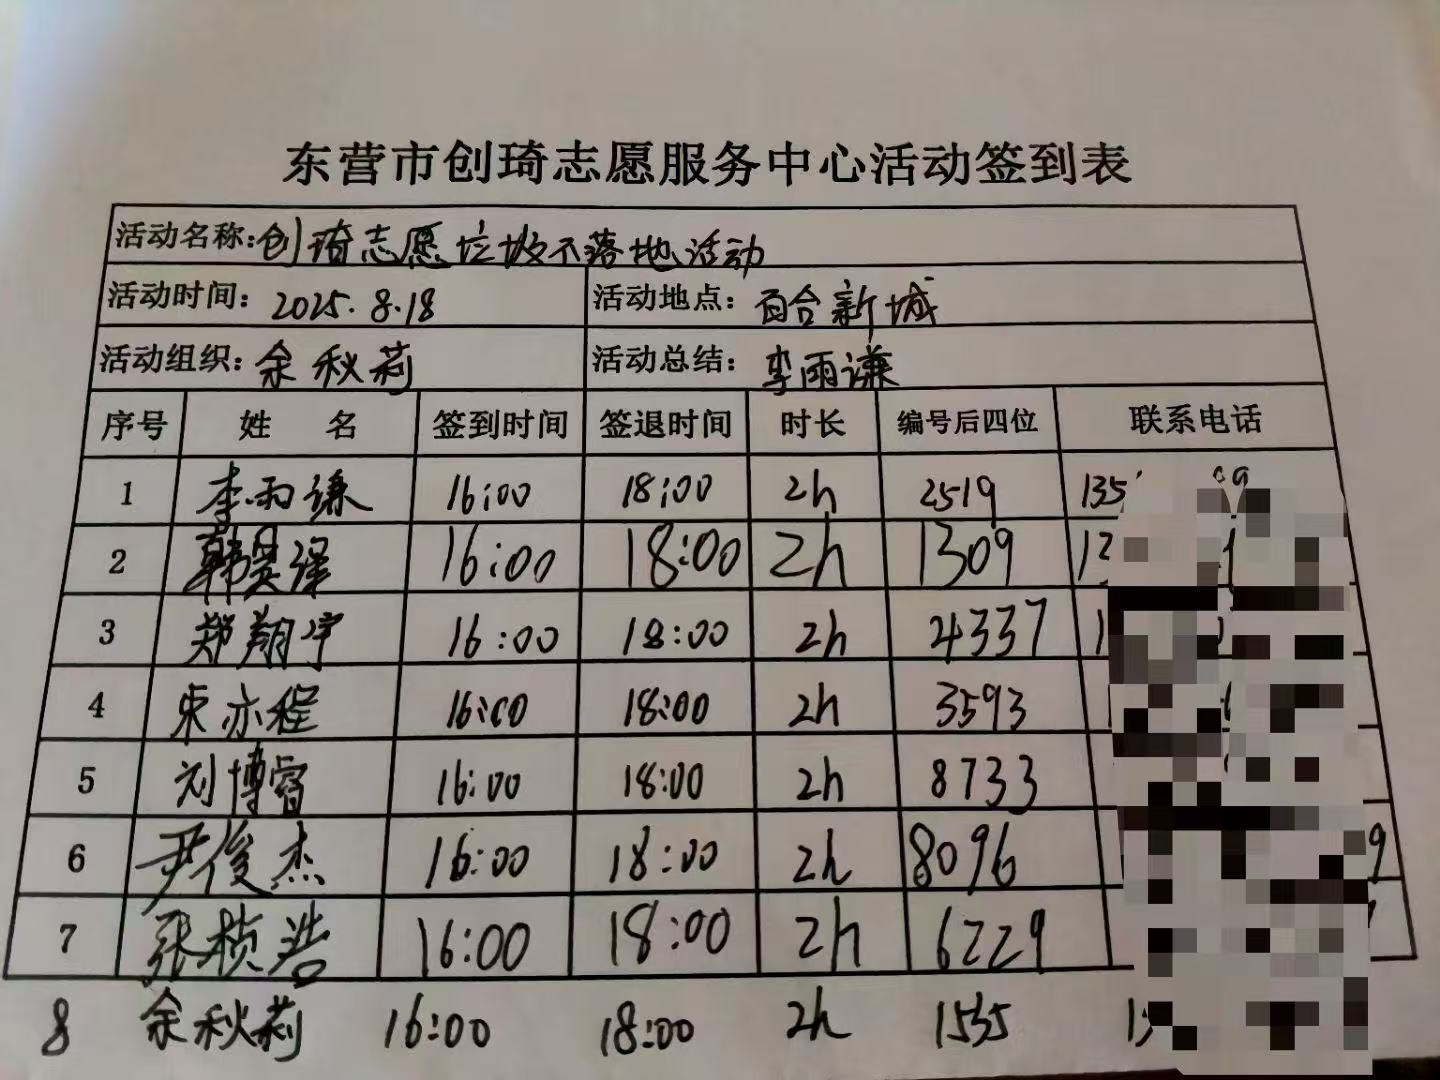 东营市创琦志愿服务中心活动签到表
活动名称:创琦志愿垃圾不落地活动
活动时间: 2025.8.18 活动地点: 百合新城
活动组织: 余秋莉 活动总结: 李雨谦
序号 姓名 签到时间 签退时间 时长 编号后四位 联系电话
1 李雨谦 16:00 18:00 2h 2519 135
2 韩昊泽 16:00 18:00 2h 1309
3 郑翔宇 16:00 18:00 2h 4337
4 宋亦程 16:00 18:00 2h 3593
5 刘博睿 16:00 18:00 2h 8733
6 尹俊杰 16:00 18:00 2h 8096
7 张桢浩 16:00 18:00 2h 6229
8 余秋莉 16:00 18:00 2h 1535